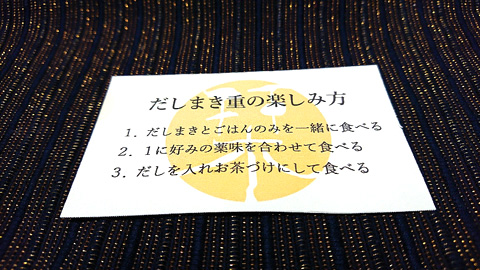 だしまき重の楽しみ方
1. だしまきとごはんのみを一緒に食べる
2. 1に好みの薬味を合わせて食べる
3. だしを入れお茶づけにして食べる